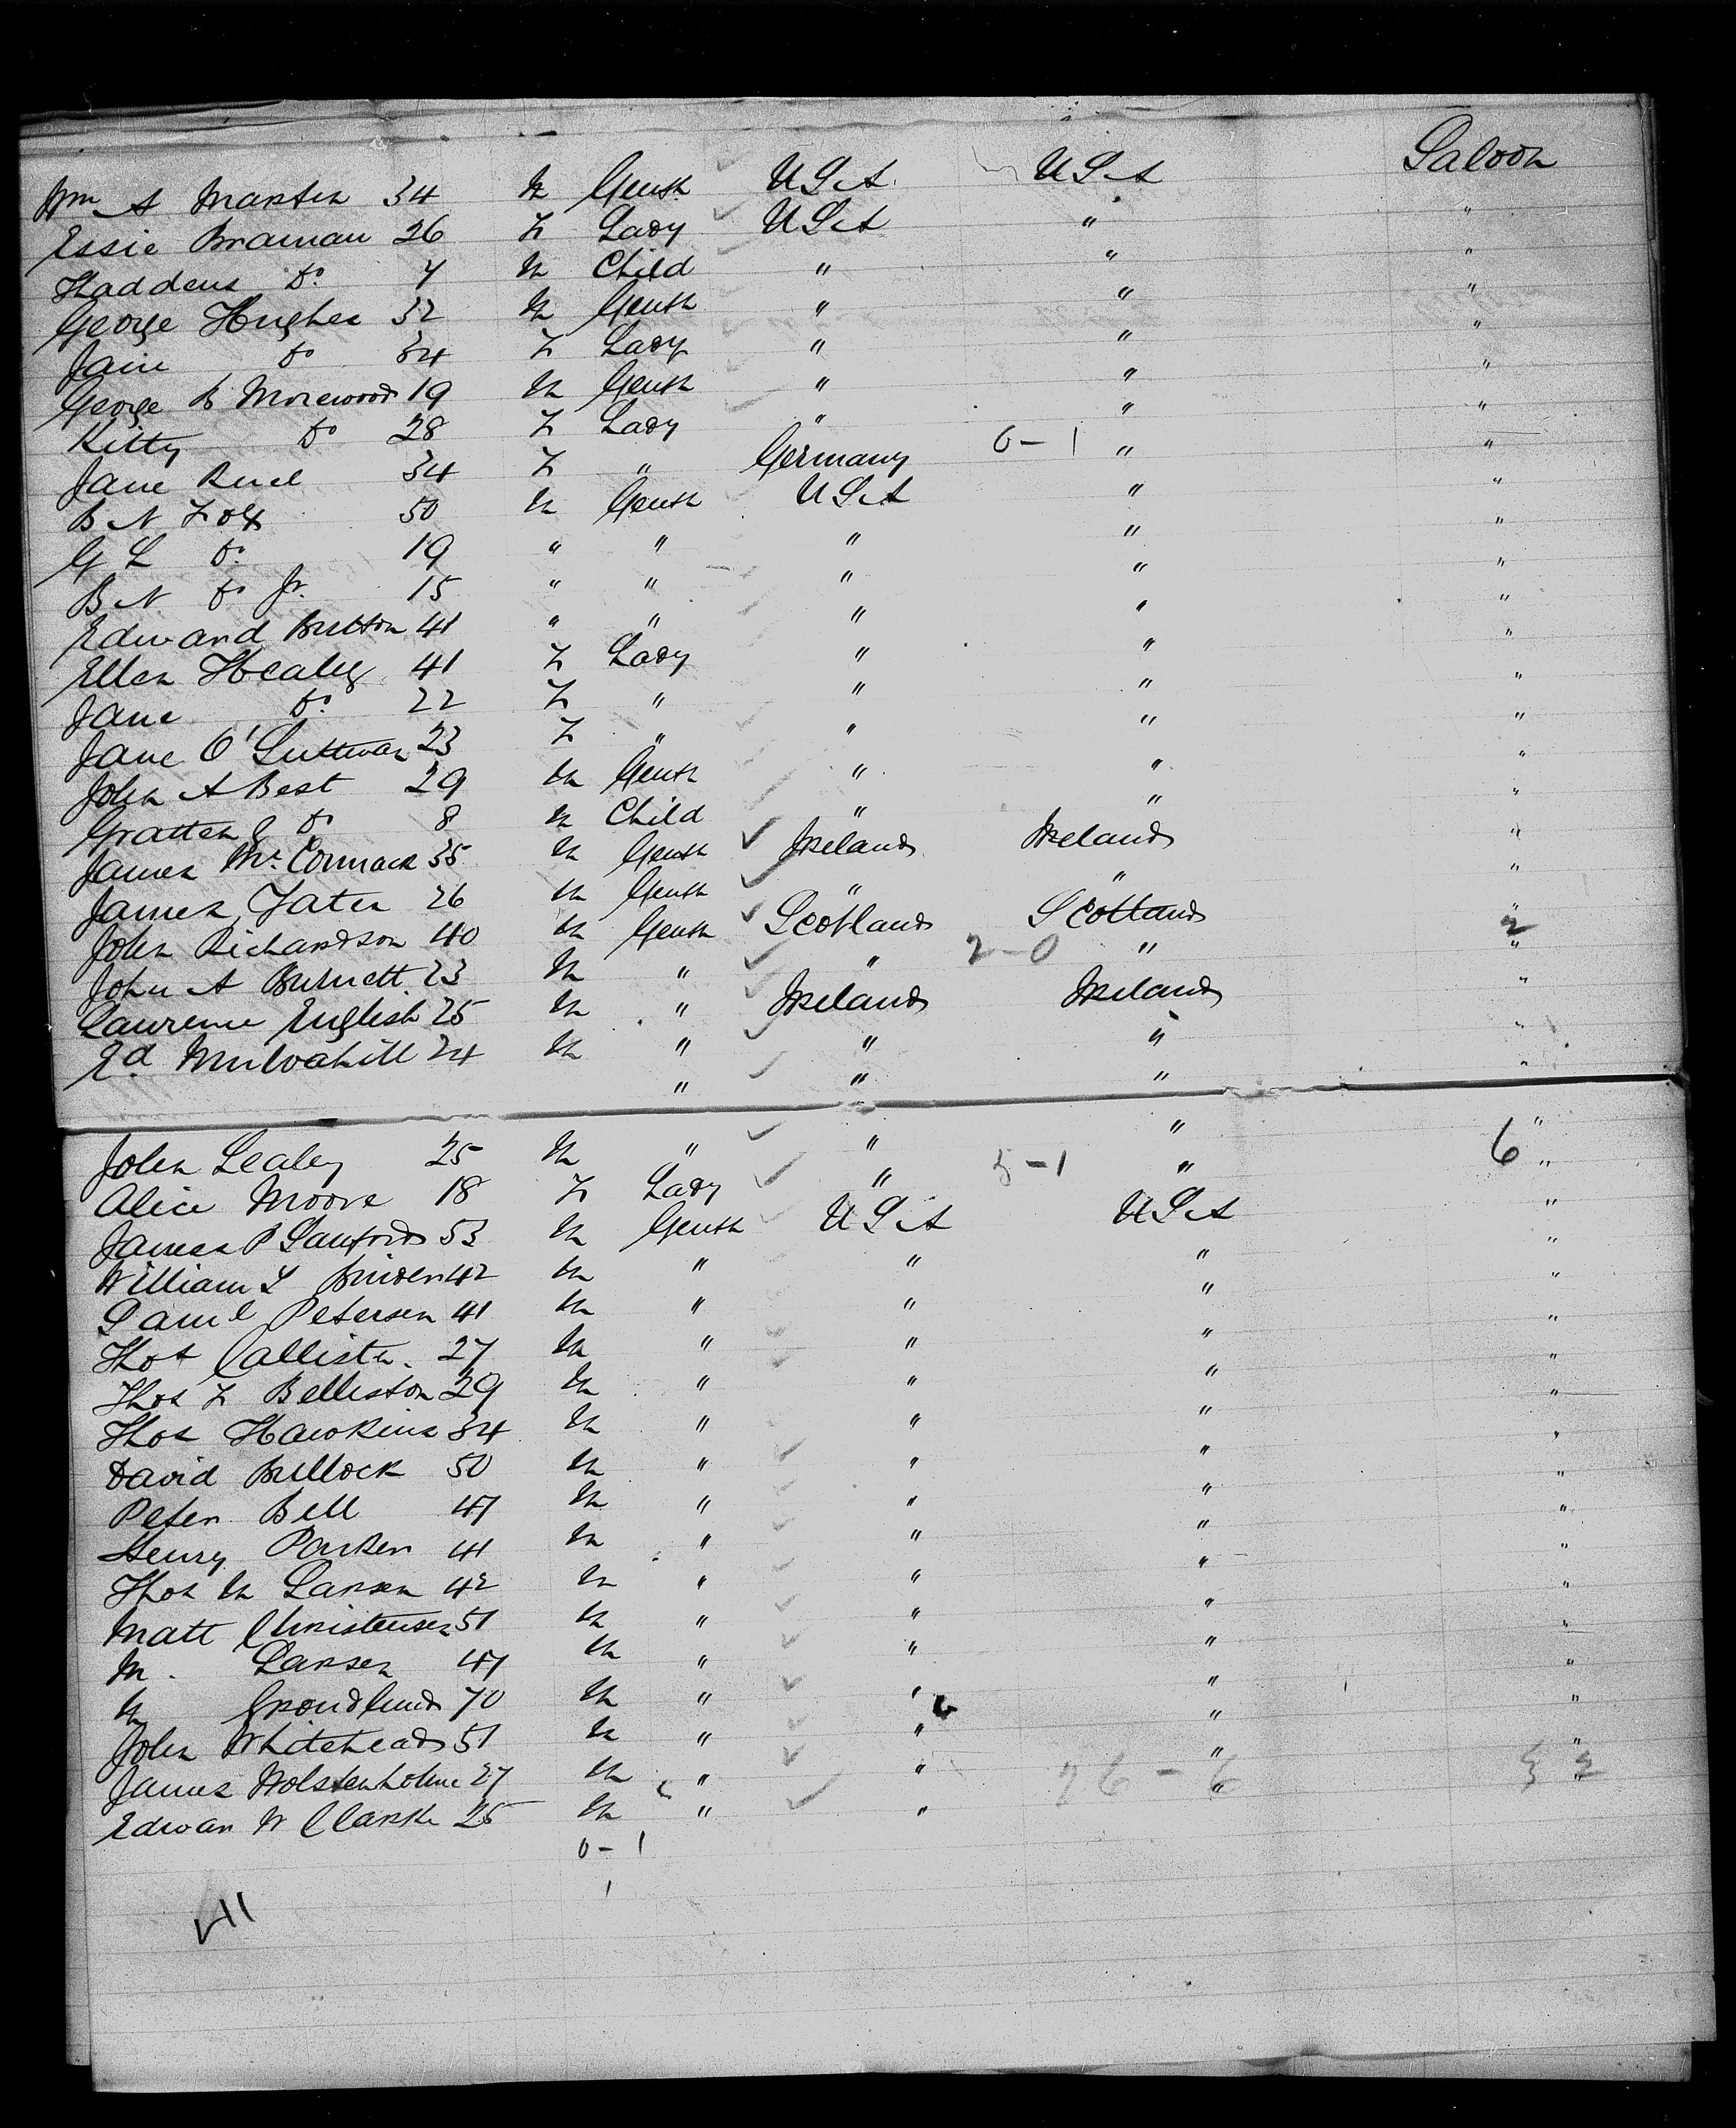 Wm A Marten 34 M Gentn USA USA Saloon
Essie Braman 26 F Lady USA "
Thaddeus Do 7 M Child " " "
George Hughes 32 M Gentn " " "
Jane Do 34 F Lady " " "
George B Morewood 19 M Gentn " " "
Kitty Do 28 F Lady " " "
Jane 34 F " Germany 0-1 " "
B N Fox 50 M Gentn USA " "
G L Do 19 " " " " "
B N Do Jr. 15 " " " " "
Edward Britton 41 " " " " "
Ellen Healey 41 F Lady " " "
Jane Do 22 F " " " "
Jane O'Sullivan 23 F " " " "
John A Best 29 M Gentn " " "
Gratten G Do 8 M Child " " "
James McCormack 35 M Gentn Ireland Ireland "
James Yates 26 M Gentn " " "
John Richardson 40 M Gentn Scotland Scotland "
John A Burnett 23 M " " 2-0 " 2 "
Lawrence English 25 M " Ireland Ireland "
Ed Mulvahill 24 M " " " "
" " " "
John Lealey 25 M " " " "
Alice Moore 18 F Lady " 5-1 " 6 "
James P Sanford 53 M Gentn USA USA "
William L 42 M " " " "
Saml Petersen 41 M " " " "
Thos Callister 27 M " " " "
Thos F Belliston 29 M " " " "
Thos Hawkins 34 M " " " "
David Bullock 50 M " " " "
Peter Bell 47 M " " " "
Henry Parker 41 M " " " "
Thos M Larsen 42 M " " " "
Matt Christensen 51 M " " " "
M. Larsen 47 M " " " "
M 70 M " " " "
John Whitehead 51 M " " " "
James Wolstenholme 27 M " " " "
Edwar W Clarke 25 M " " 26-6 "
0-1
1